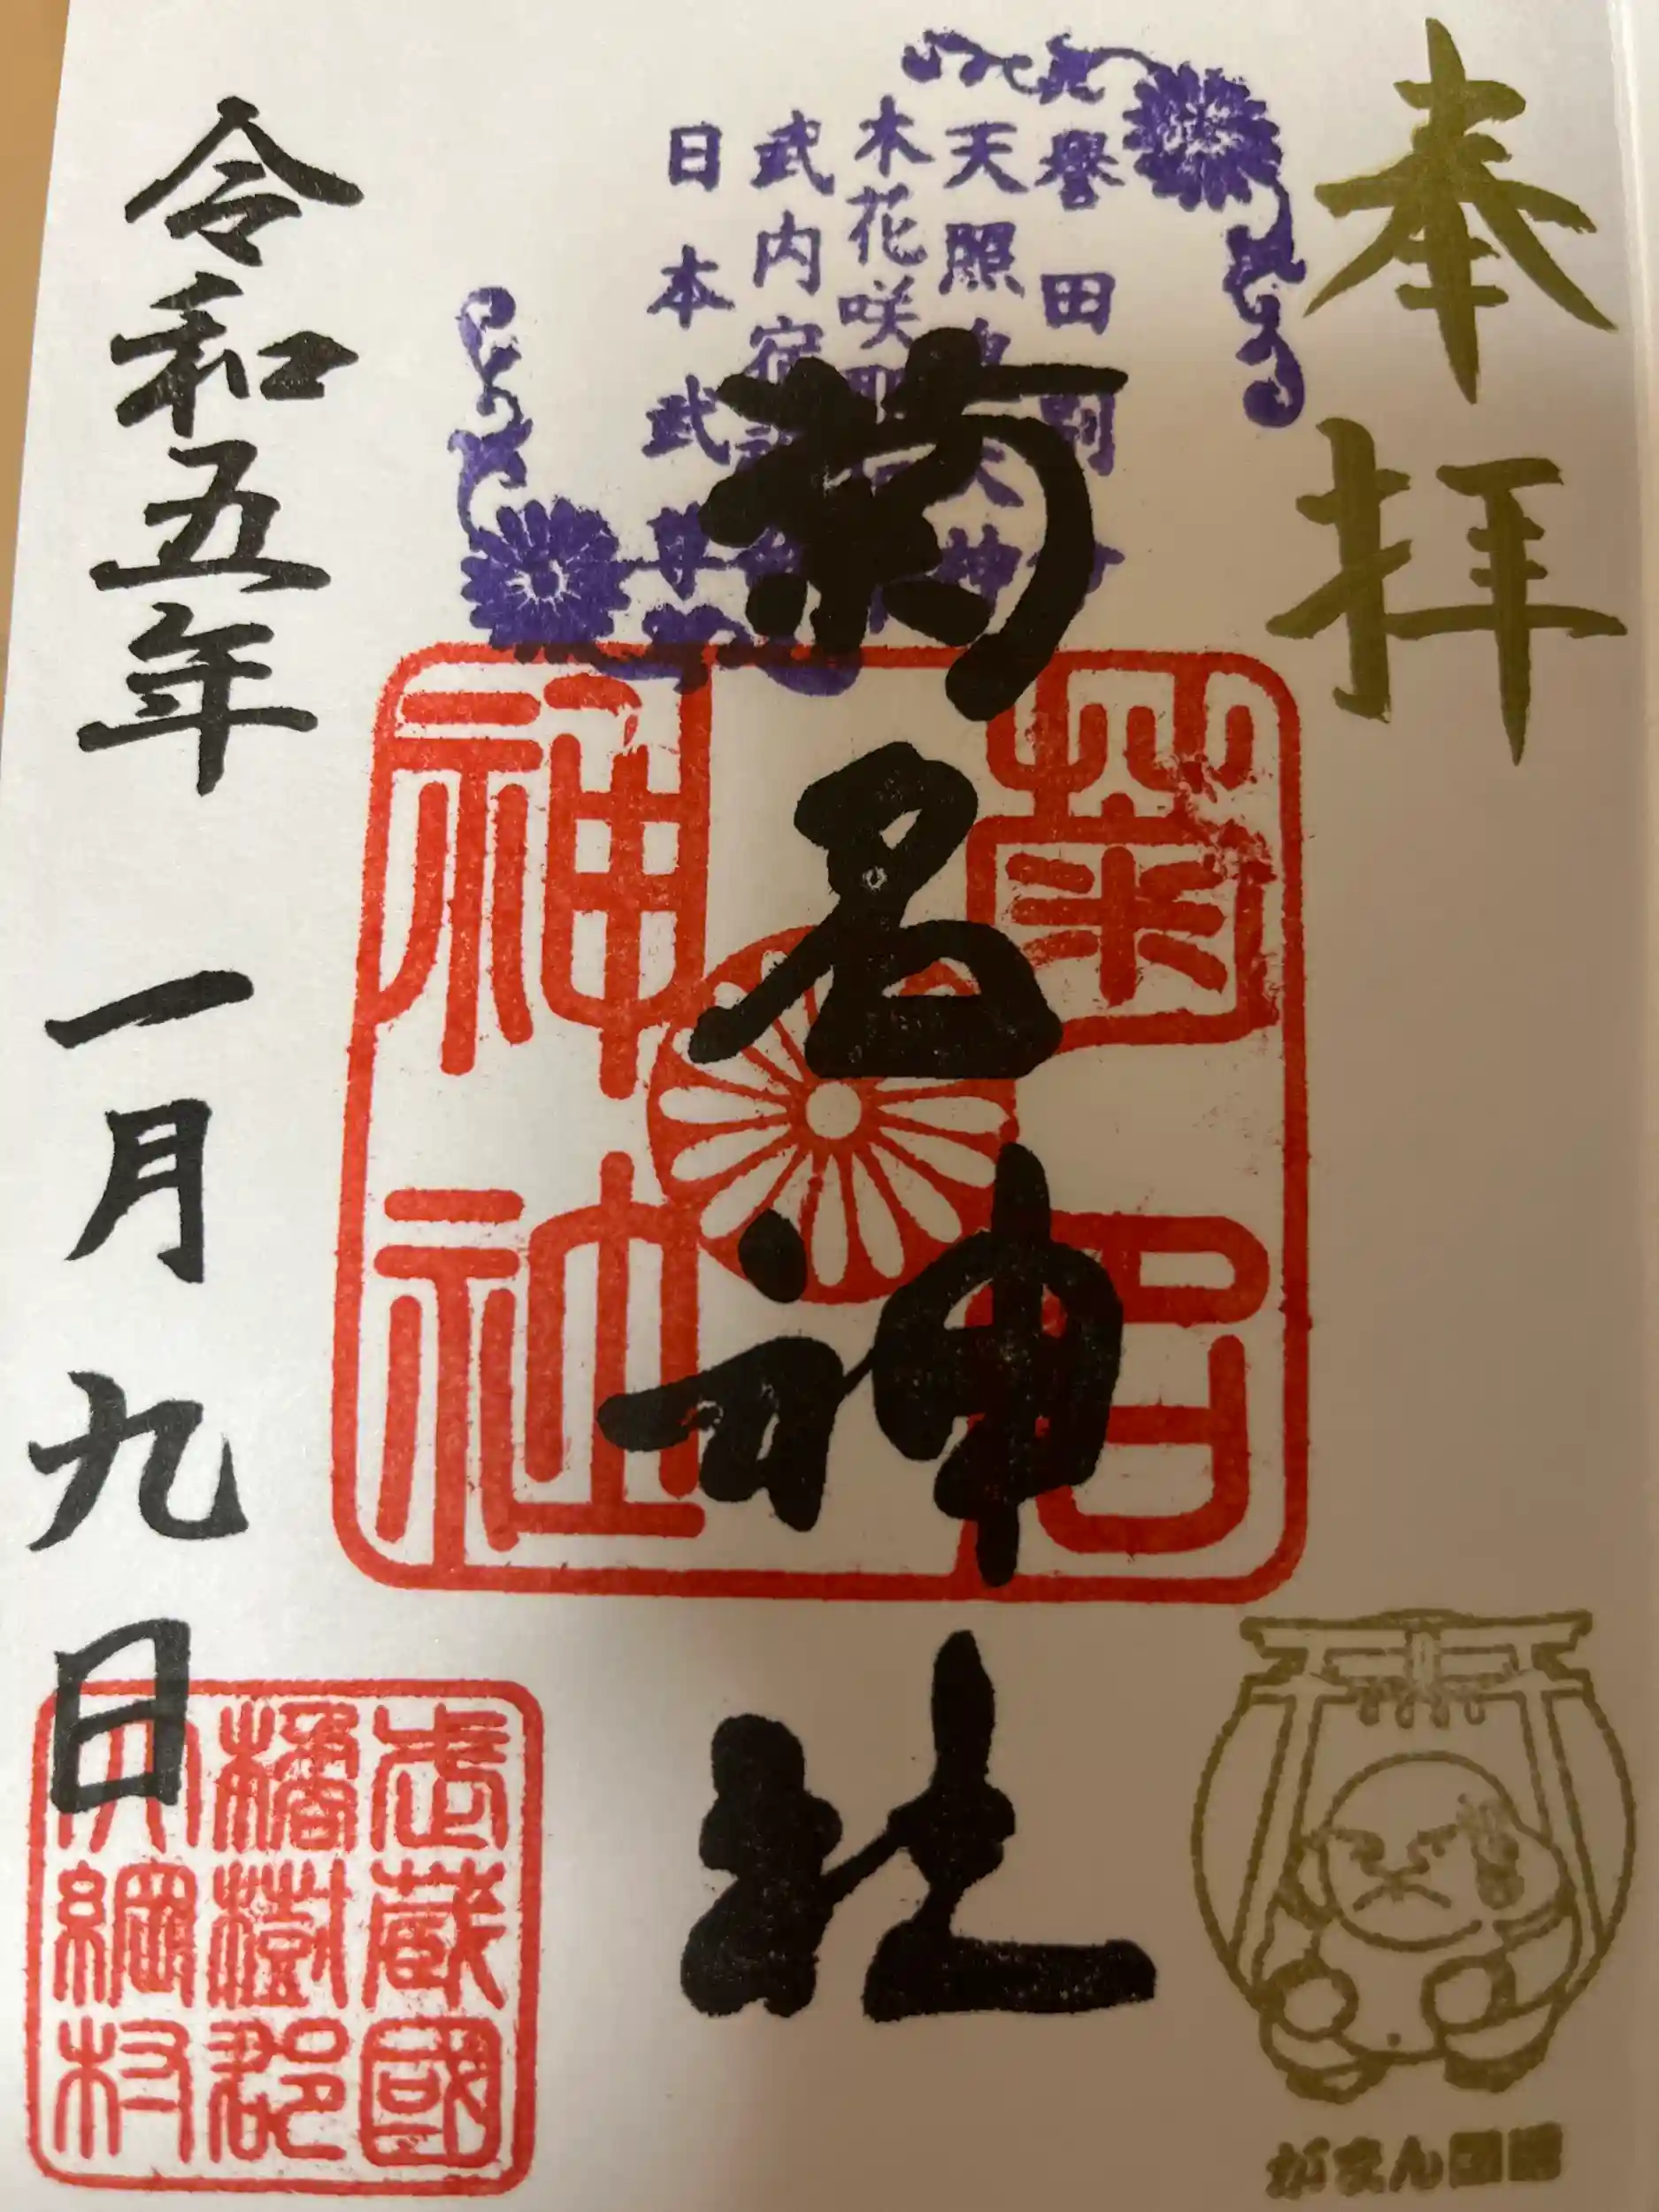 奉拝
譽田別命
天照皇大神
木花咲耶姫命
武内宿禰命
日本武尊
菊名神社
菊名
神社
令和五年一月九日
武蔵國
橘樹郡
大綱村
がまん